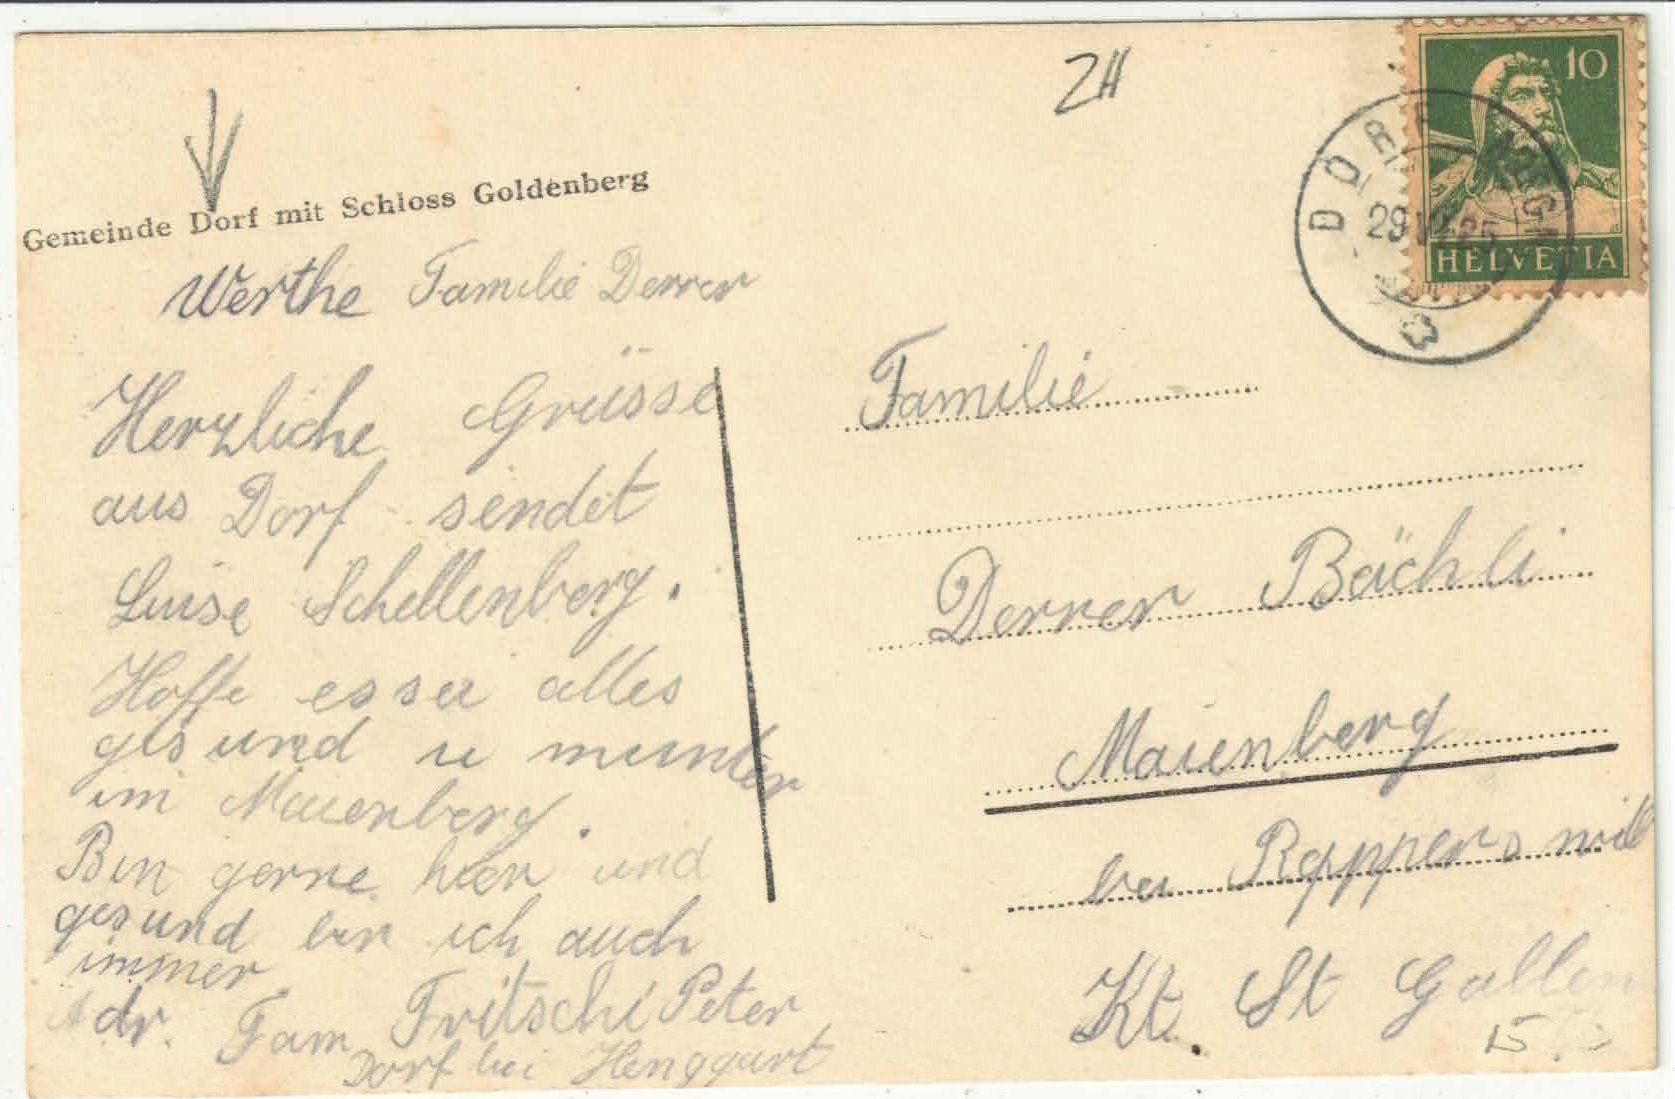 ZH
Gemeinde Dorf mit Schloss Goldenberg
Werthe Familie Derrer
Herzliche Grüsse
aus Dorf sendet
Luise Schellenberg.
Hoffe es sei alles
gesund u munter
im Maienberg.
Bin gerne hier und
gesund bin ich auch
immer
Adr. Fam Fritschi Peter
Dorf bei Henggart
10
HELVETIA
DORF
29
Familie
Derrer Bächli
Maienberg
bei Rapperswil
Kt. St Gallen
15